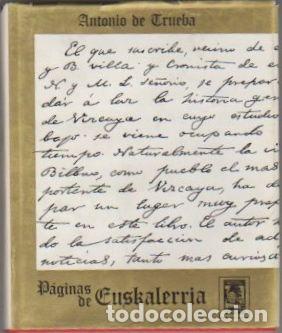 Antonio de Trueba
El que suscribe, vecino de e
y B. villa y Cronista de e
N. y M. L. Señorio, se prepar
dár á luz la historia gen
de Vizcaya en cuyo estudio
bajo se viene ocupando
tiempo. Naturalmente la vi
Bilbao, como pueblo el mas
portente de Vizcaya, ha de
par un lugar muy pref
te en este libro. El autor
do la satisfaccion de ad
noticias, tanto mas curios
Páginas
de Euskalerria
todocoleccion.net